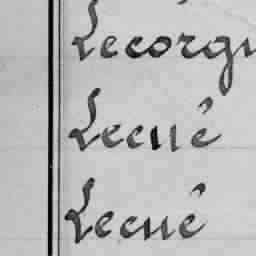 Lecorgu
Lecué
Lecué